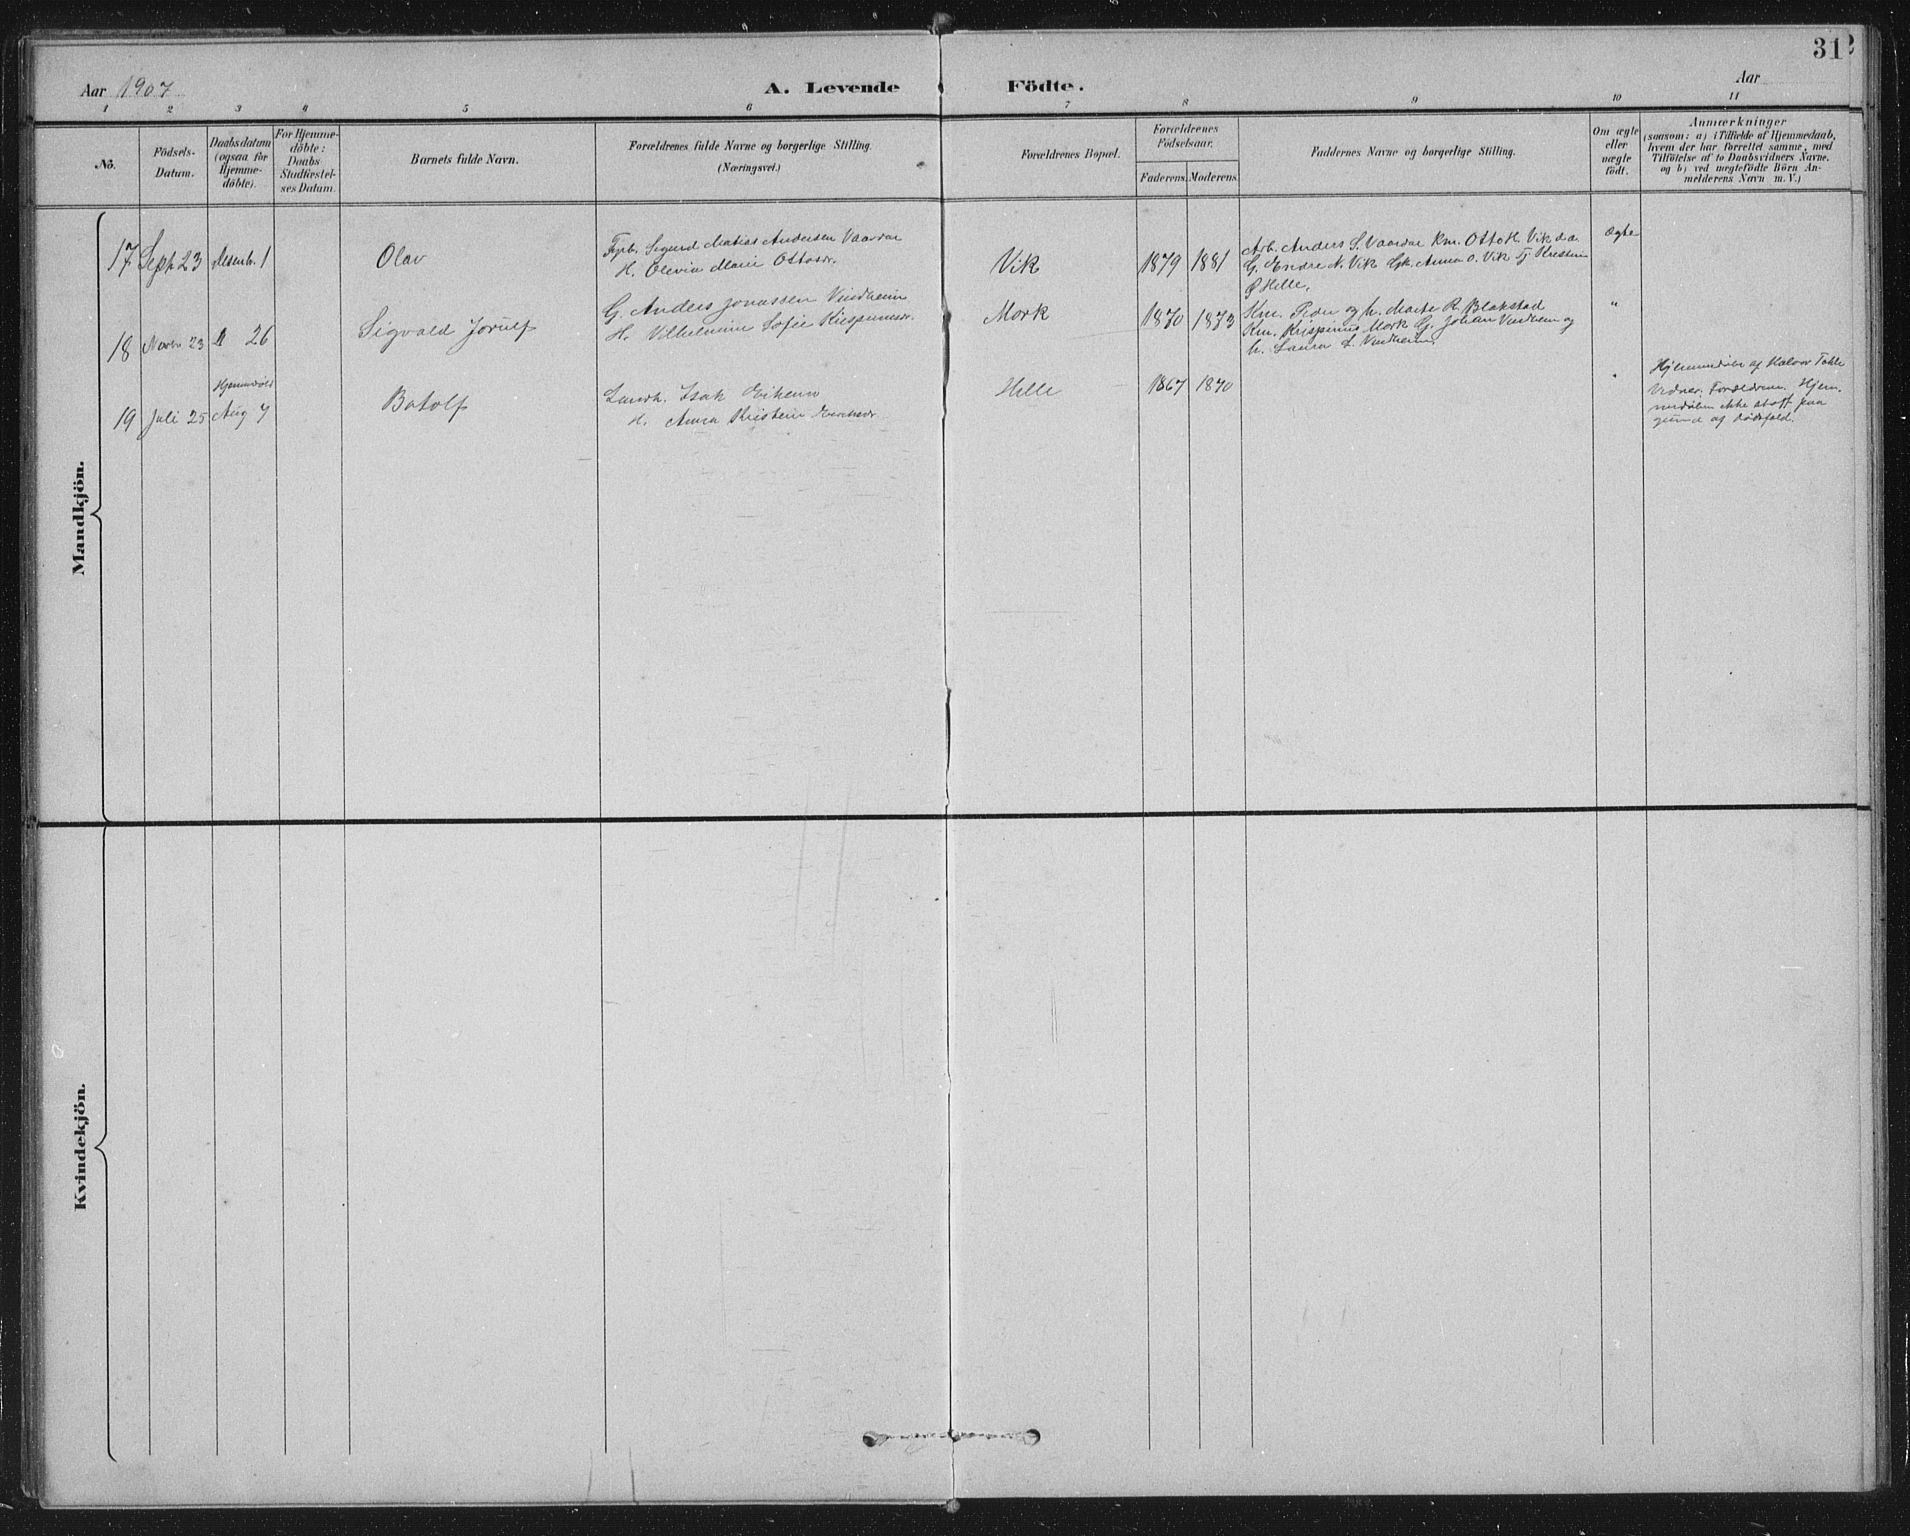 31
Aar 1907
A. Levende Födte.
Aar
1 2 3 4 5 6 7 8 9 10 11
No.
Födsels-
Datum.
Daabsdatum
(ogsaa for
Hjemme-
döbte).
For Hjemme-
döbte:
Daabs
Stadfæstel-
ses Datum.
Barnets fulde Navn.
Forældrenes fulde Navne og borgerlige Stilling.
(Næringsvei.)
Forældrenes Bopæl.
Forældrenes
Födselsaar.
Faderens. Moderens.
Faddernes Navne og borgerlige Stilling.
Om ægte
eller
uægte
födt.
Anmærkninger
(saasom: a) i Tilfælde af Hjemmedaab,
hvem der har forrettet samme, med
Tilföielse af to Daabsvidners Navne.
og b) ved uægtefödte Börn An-
melderens Navn m. V.)
Mandkjön.
17 Septr 23 Desemb. 1
Olav
Fyrb. Sigurd Matias Andersen Vaardal
H. Olevia Marie Ottosdr.
Vik
1879 1881
Arb. Anders S. Vaardal Km. Otto H. Vik d.æ.
G. Endre N. Vik Gk. Anna O. Vik Pj Kristin
Ø Helle.
ægte
18 Novbr 23 D 26
Sigvald Jorulf
G. Anders Jonassen Vindheim
H. Vilhelmine Sofie Krispinusdr.
Mork
1870 1873
Km. Peder og h. Marte R. Blakstad
Km. Krispinus Mork G. Johan Vindheim og
h. Laura L. Vindheim.
"
Hjemmedöbt
19 Juli 25 Aug 7
Botolf
Landh. Isak Eikemo
H. Anna Kristine
Helle
1867 1870
"
Hjemmedöbt af Halvor Takle
Vidner: Forældrene. Hjem-
medåben ikke stadf. paa
grund af dödsfald.
Kvindekjön.